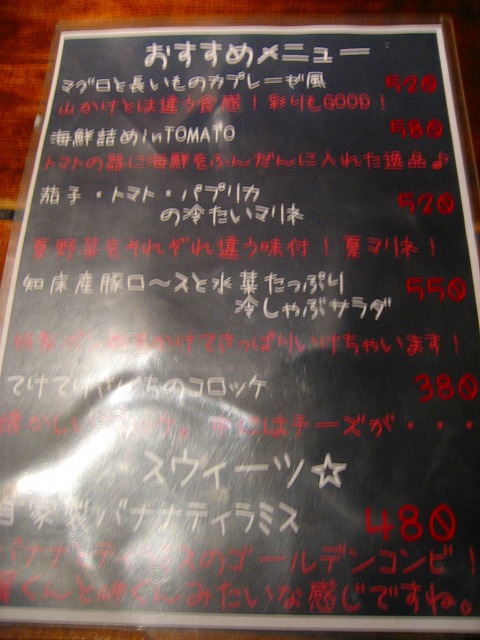 おすすめメニュー
マグロと長いものカプレーゼ風 520
山かけとは違う食感！彩りもGOOD！
海鮮詰めinTOMATO 580
トマトの器に海鮮をふんだんに入れた逸品♪
茄子・トマト・パプリカ
の冷たいマリネ 520
夏野菜をそれぞれ違う味付！夏マリネ！
知床産豚ロースと水菜たっぷり 550
冷しゃぶサラダ
かけてさっぱりいけちゃいます！
のコロッケ 380
にはチーズが・・・
スウィーツ☆
自家製バナナティラミス 480
バナナとティラミスのゴールデンコンビ！
くんと岬くんみたいな感じですね。